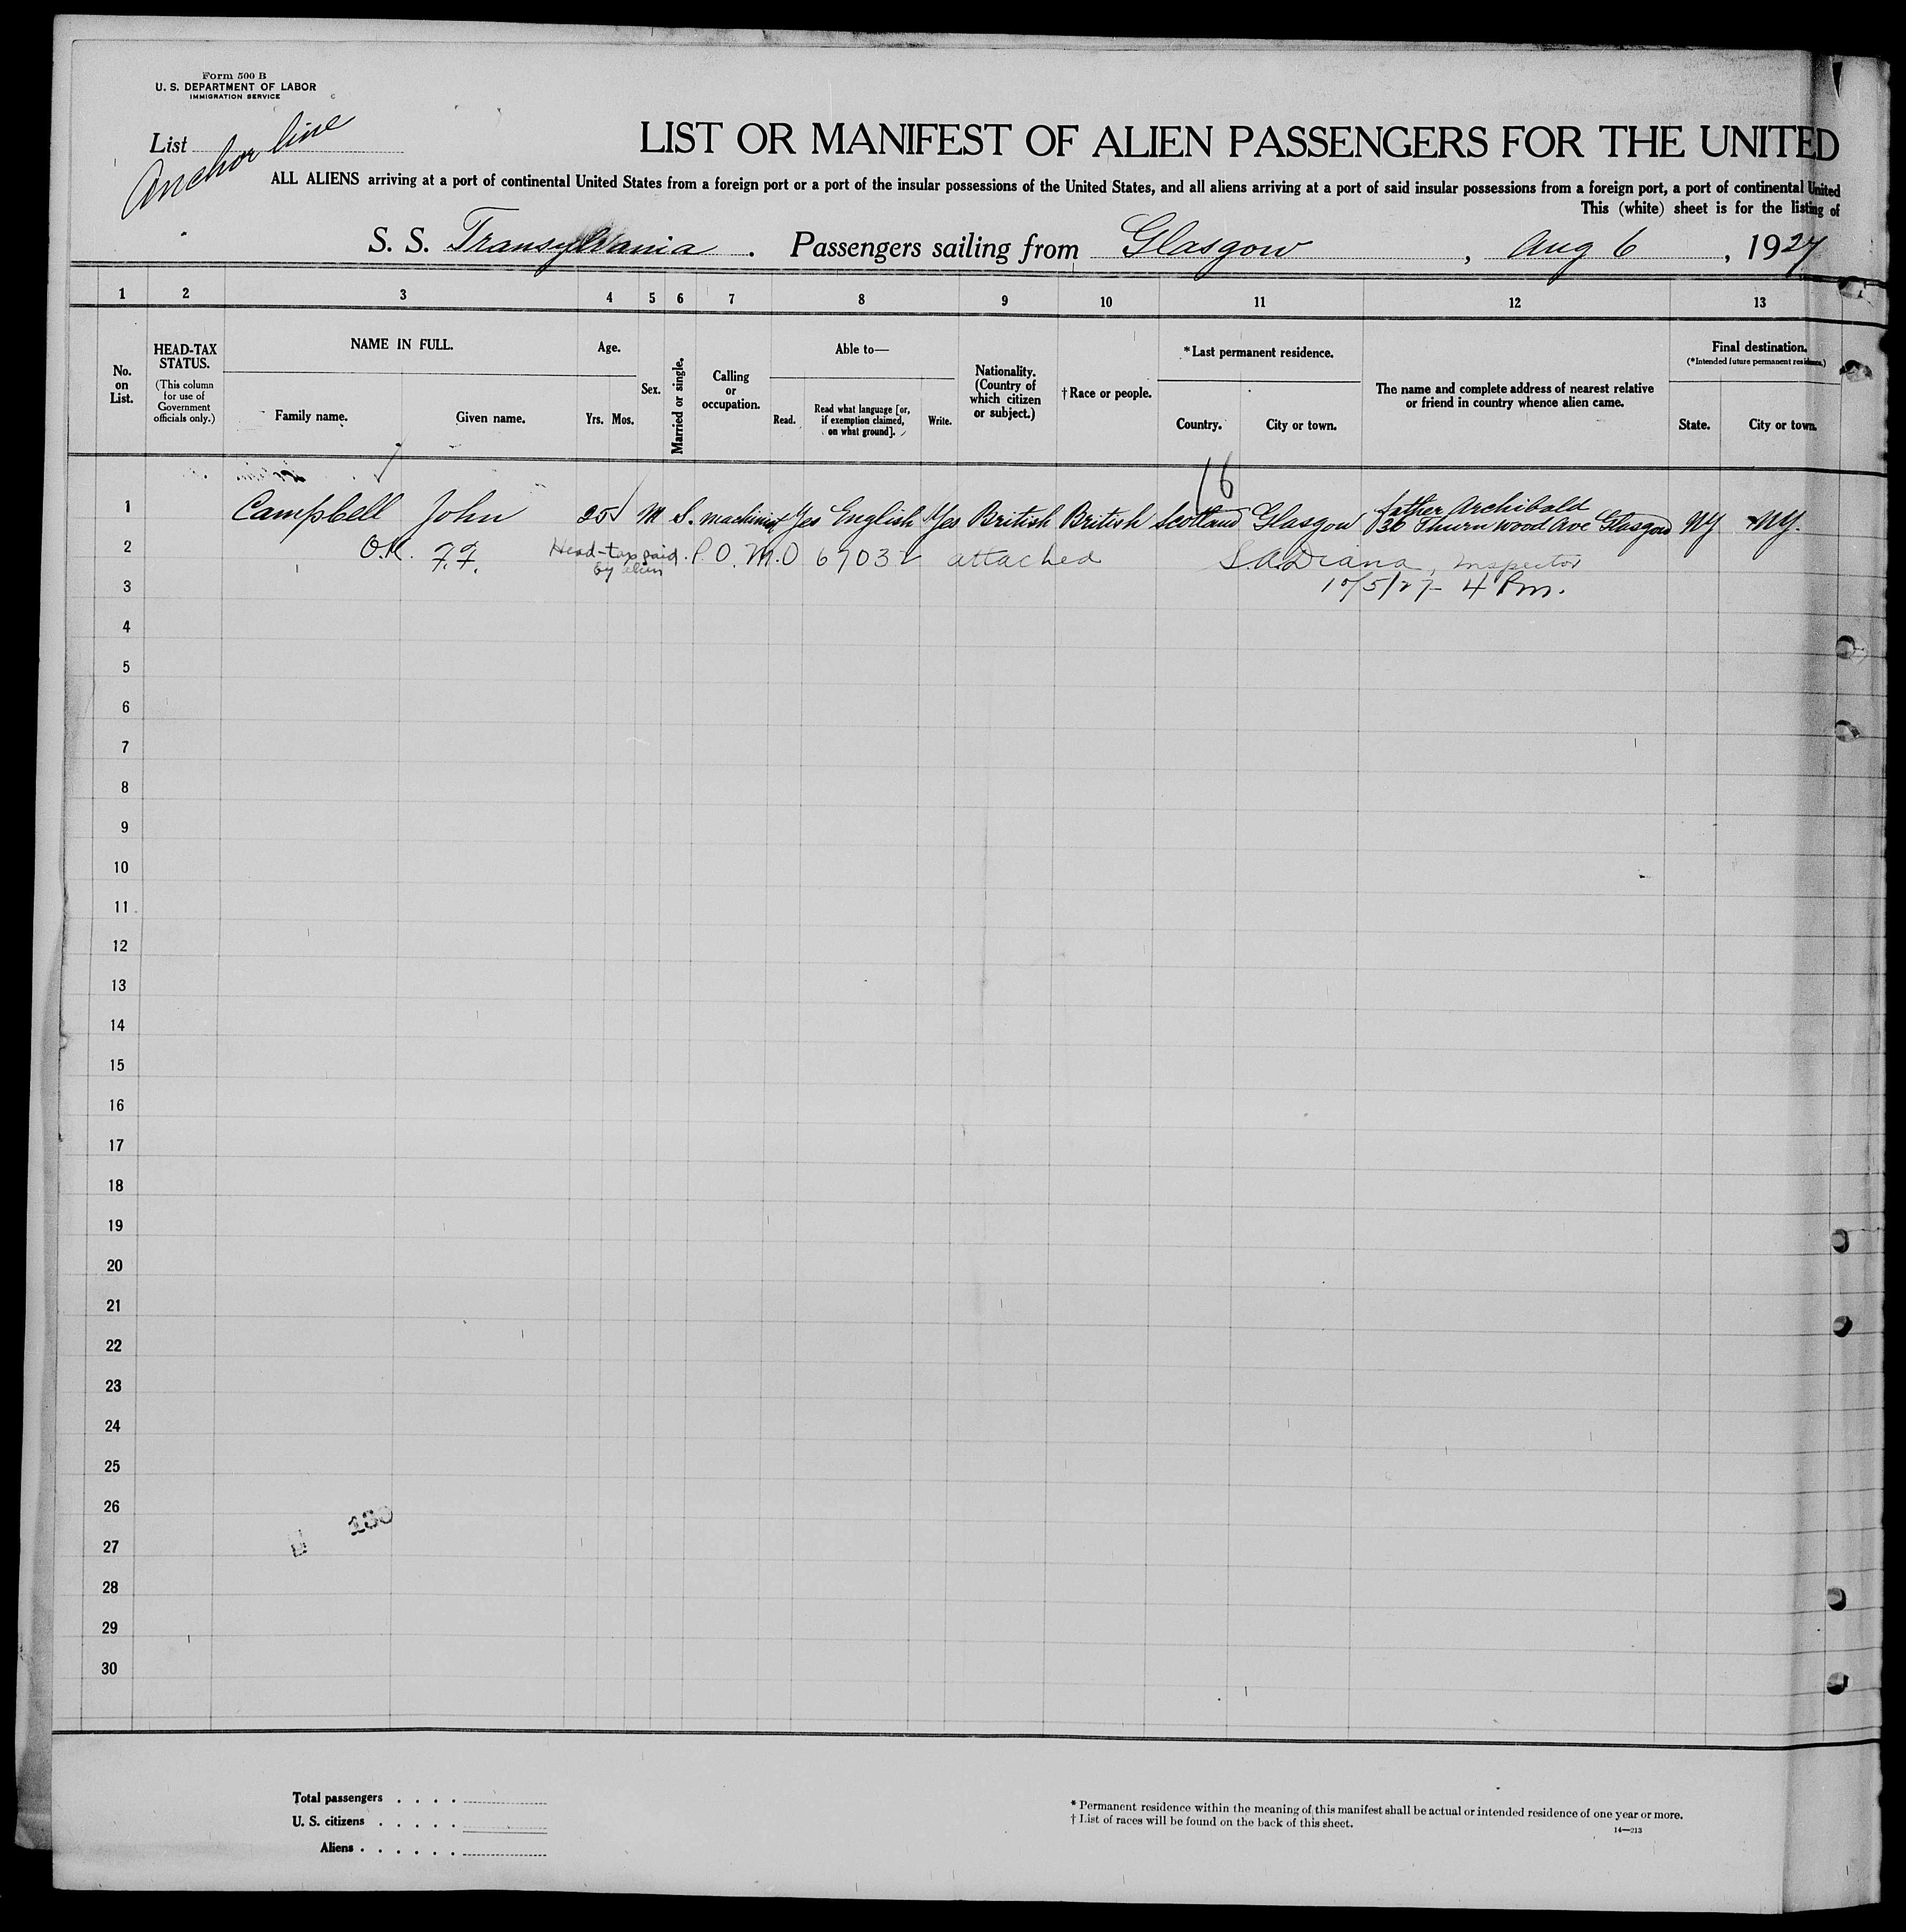 Form 500 B
U. S. DEPARTMENT OF LABOR
IMMIGRATION SERVICE
List
Anchor line
LIST OR MANIFEST OF ALIEN PASSENGERS FOR THE UNITED
ALL ALIENS arriving at a port of continental United States from a foreign port or a port of the insular possessions of the United States, and all aliens arriving at a port of said insular possessions from a foreign port, a port of continental United
This (white) sheet is for the listing of
S. S. Transylvania . Passengers sailing from Glasgow , Aug 6 , 1927
1 2 3 4 5 6 7 8 9 10 11 12 13
No. on List.
HEAD-TAX STATUS.
(This column for use of Government officials only.)
NAME IN FULL.
Family name. Given name.
Age.
Yrs. Mos.
Sex.
Married or single.
Calling or occupation.
Able to—
Read.
Read what language [or, if exemption claimed, on what ground].
Write.
Nationality. (Country of which citizen or subject.)
†Race or people.
*Last permanent residence.
Country. City or town.
The name and complete address of nearest relative or friend in country whence alien came.
Final destination.
(*Intended future permanent residence.)
State. City or town.
16
father Archibald
1 Campbell John 25 M S. machinist Yes English Yes British British Scotland Glasgow 36 Thurn wood Ave Glasgow NY NY.
2 O.K. F.F. Head-tax paid by alien P.O.M.O 67032 attached S.A. Diana, Inspector
3 10/5/27 4 Pm.
4
5
6
7
8
9
10
11
12
13
14
15
16
17
18
19
20
21
22
23
24
25
26
180
27
28
29
30
Total passengers . . . .
U. S. citizens . . . . .
Aliens . . . . . .
* Permanent residence within the meaning of this manifest shall be actual or intended residence of one year or more.
† List of races will be found on the back of this sheet.
14—213